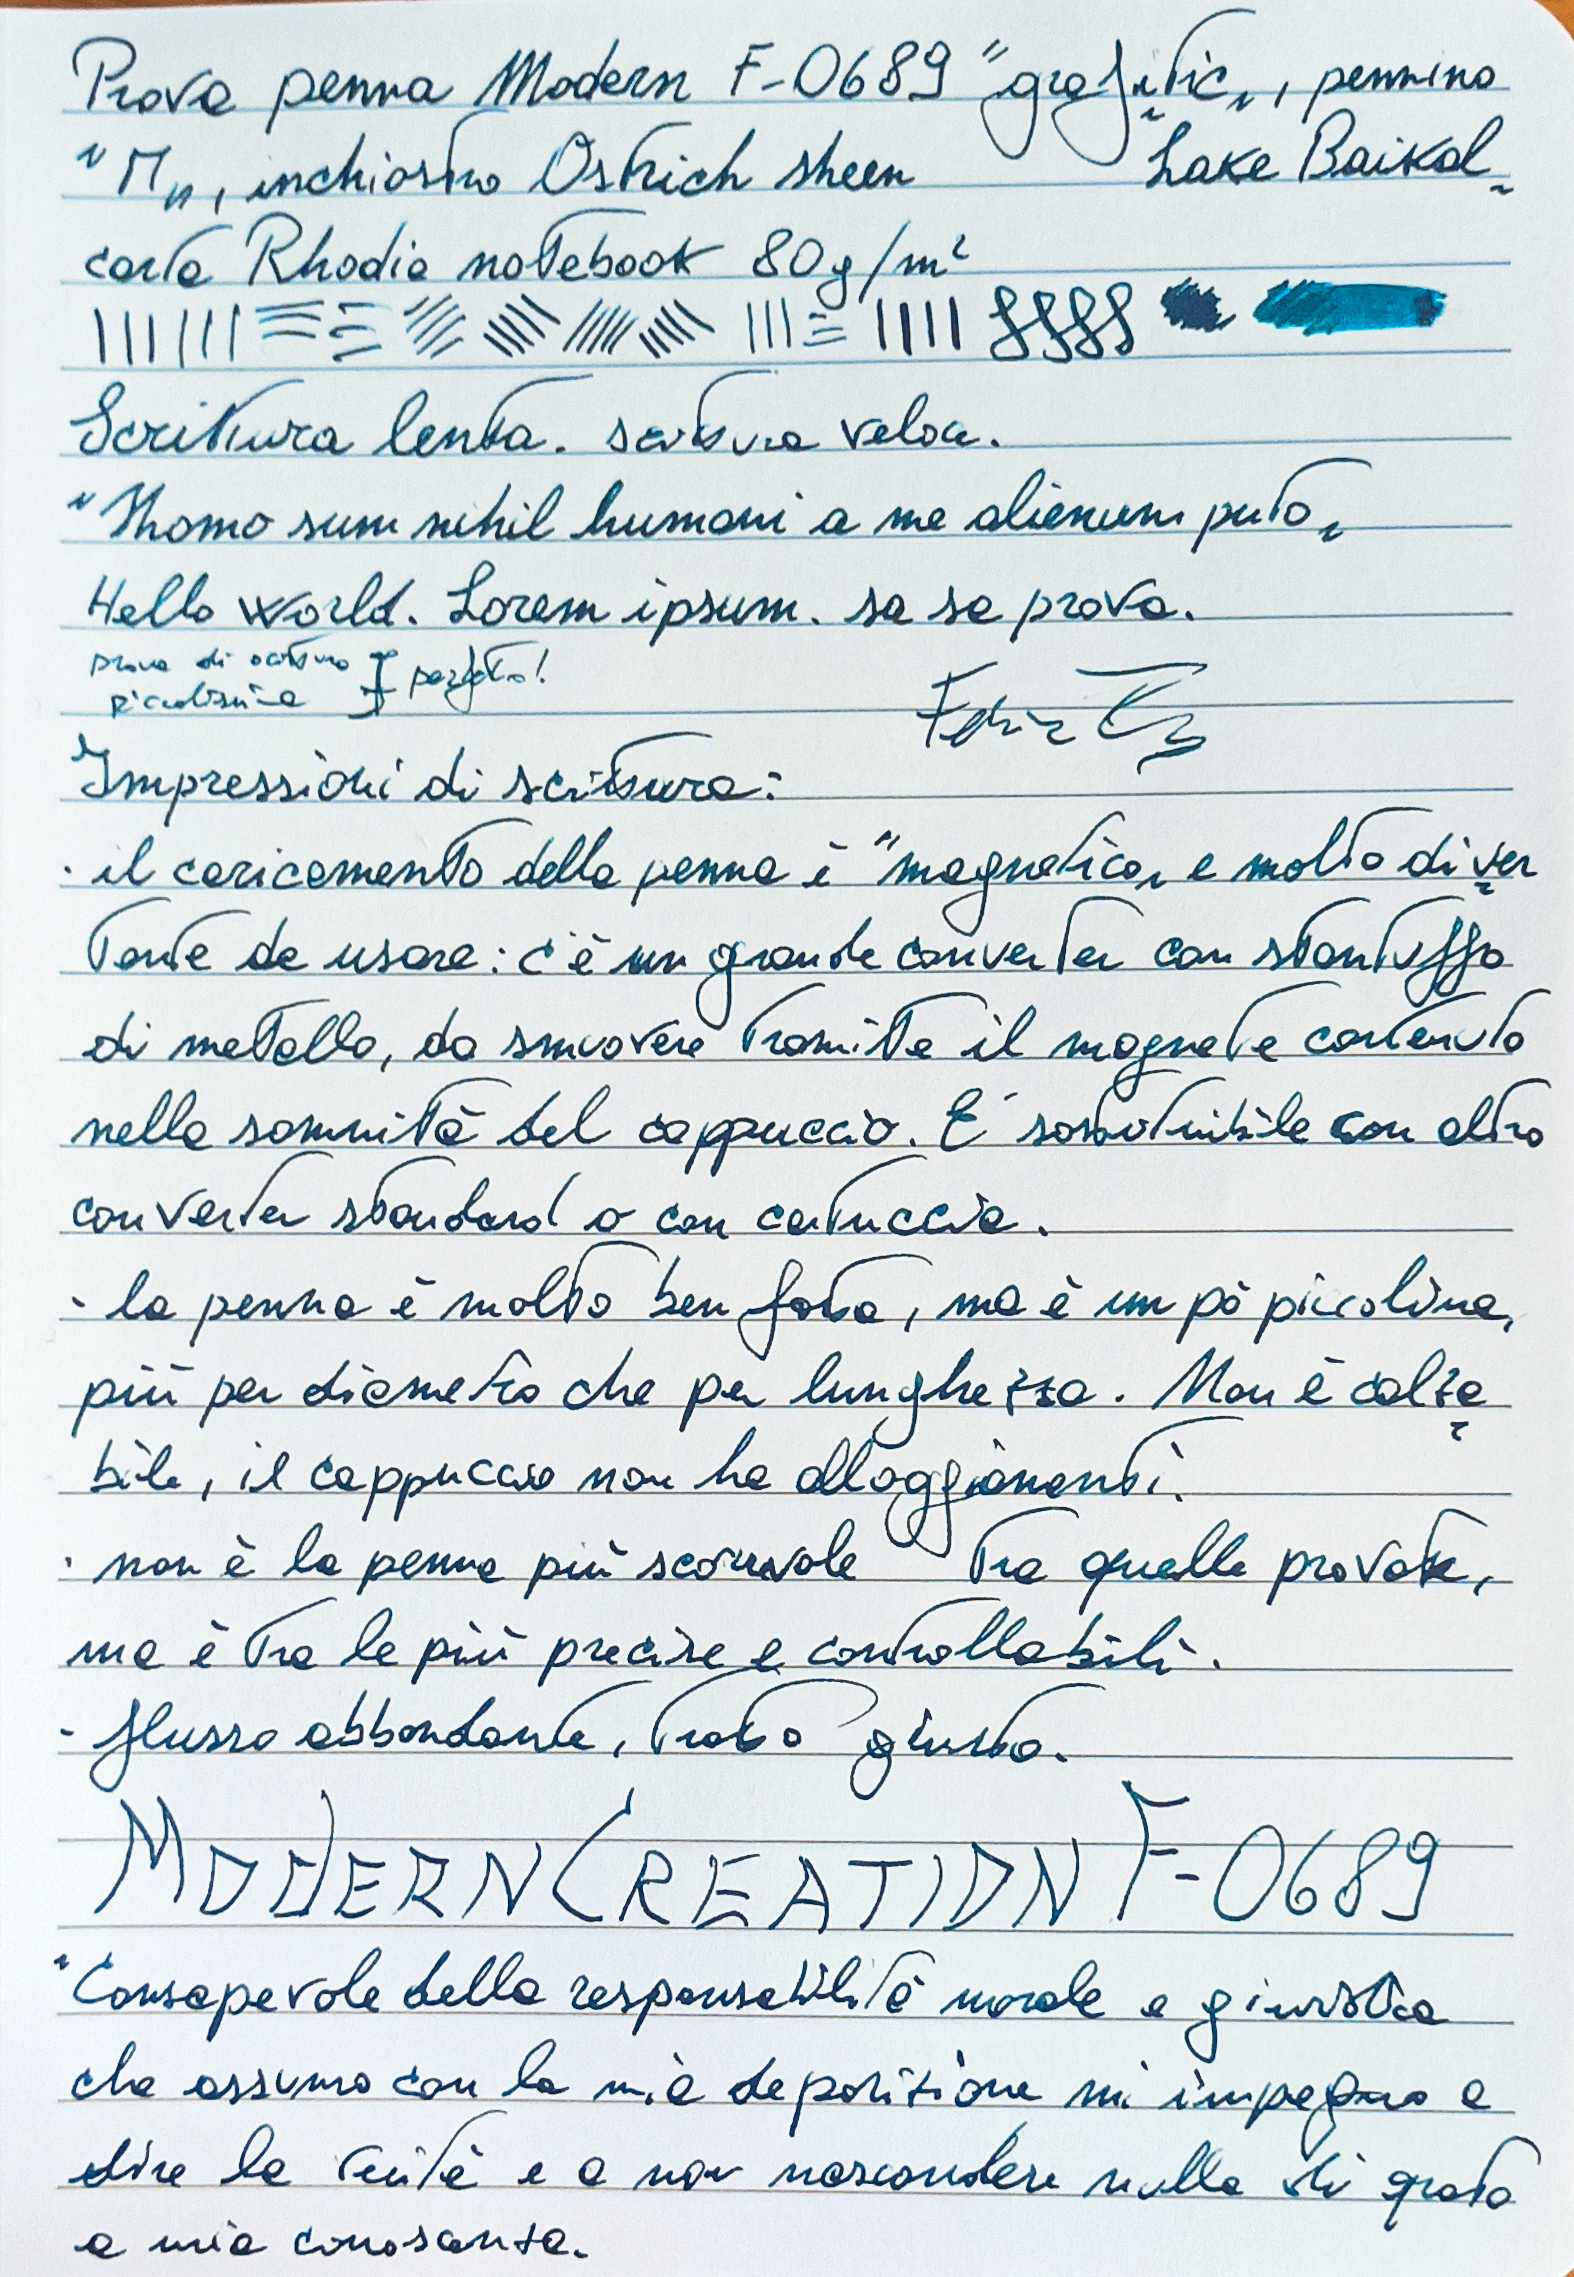 Prova penna Modern F-0689 "grafitic", pennino
"M", inchiostro Ostrich sheen "Lake Baikal"
carta Rhodia notebook 80g/m²
Scrittura lenta. scrittura veloce.
"Homo sum nihil humani a me alienum puto"
Hello world. Lorem ipsum. sa sa prova.
prova di scrittura
piccolissima perfetto!
Impressioni di scrittura:
· il caricamento della penna è "magnetico" e molto diver
tente da usare: c'è un grande converter con stantuffo
di metallo, da smuovere tramite il magnete contenuto
nella sommità del cappuccio. E' sostituibile con altro
converter standard o con cartuccia.
- la penna è molto ben fatta, ma è un pò piccolina,
più per diametro che per lunghezza. Non è calza
bile, il cappuccio non ha alloggiamenti.
· non è la penna più scorrevole tra quelle provate,
ma è tra le più precise e controllabili.
- flusso abbondante, tratto giusto.
MODERN CREATION F-0689
"Consapevole della responsabilità morale e giuridica
che assumo con la mia deposizione mi impegno a
dire la verità e a non nascondere nulla di quato
a mia conosanza.